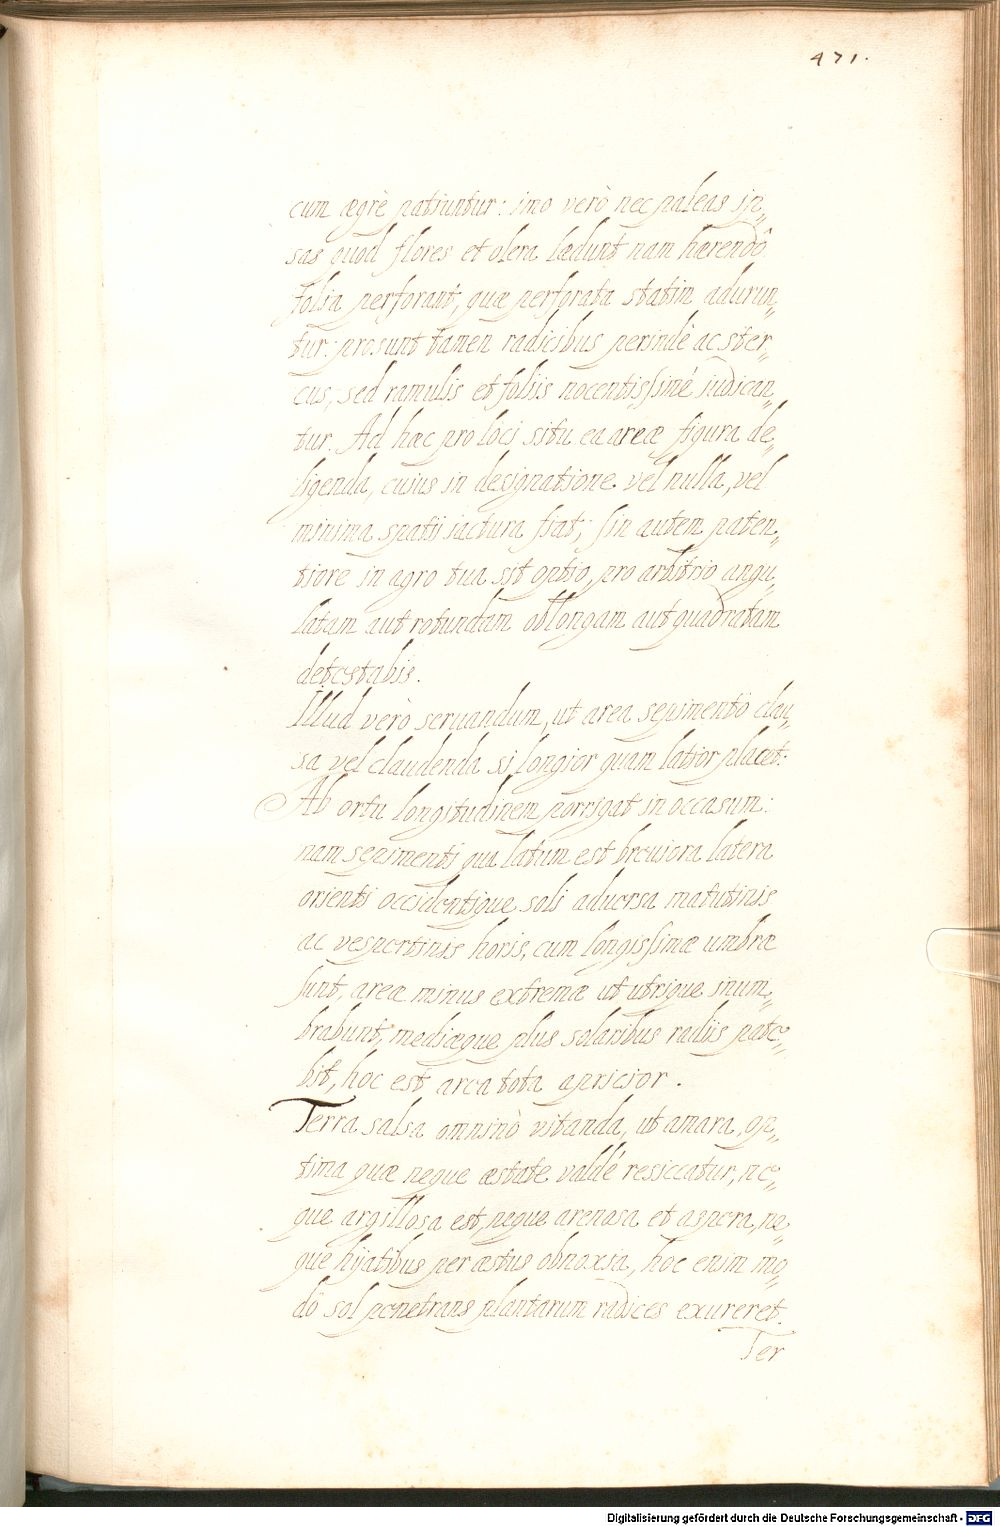 471.
cum ægrè patiuntur: imo verò nec paleas ip„
sas quod flores et olera lædunt nam hærendô
folia perforant, quæ perforata statim adurun„
tur: prosunt tamen radicibus perindè ac ster„
cus, sed ramulis et foliis nocentissimè iudican„
tur. Ad hæc pro loci situ ea areæ figura de„
ligenda, cuius in designatione vel nulla, vel
minima spatii iactura fiat; sin autem paten„
tiore in agro tua sit optio, pro arbitrio angu„
latam aut rotundam oblongam aut quadratam
detestabis.
Illud verò seruandum, ut area sepimentô clau„
sa vel claudenda si longior quam latior placet:
Ab ortu longitudinem porrigat in occasum:
nam sepimenti qua latum est breuiora latera
orienti occidentique soli aduersa matutinis
ac vespertinis horis, cum longissimæ umbræ
sunt, areæ minus extremæ ut utrique inum„
brabunt, mediæque plus solaribus radiis pate„
bit, hoc est area tota apricior.
Terra salsa omninò vitanda, ut amara, op„
tima quæ neque æstate valdè resiccatur, ne„
que argillosa est, neque arenosa et aspera, ne„
que hijatibus per æstus obnoxia, hoc enim mo„
dô sol penetrans plantarum radices exureret.
Ter
Digitalisierung gefördert durch die Deutsche Forschungsgemeinschaft - DFG